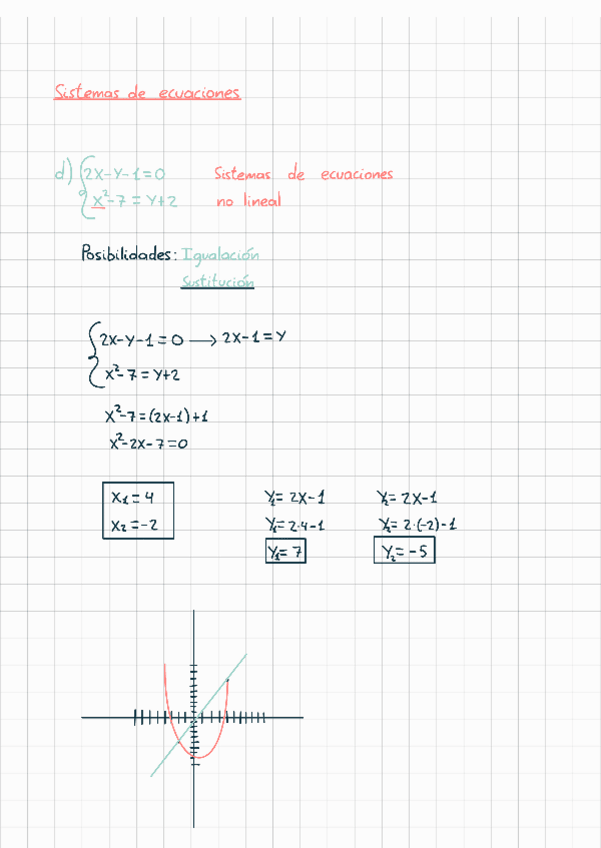 Sistemas de ecuaciones
d) {2x-y-1=0 Sistemas de ecuaciones
x²-7=y+2 no lineal
Posibilidades: Igualación
Sustitución
{2x-y-1=0 → 2x-1=y
x²-7=y+2
x²-7=(2x-1)+1
x²-2x-7=0
x₁=4 y₁=2x-1 y₂=2x-1
x₂=-2 y₁=2·4-1 y₂=2·(-2)-1
y₁=7 y₂=-5